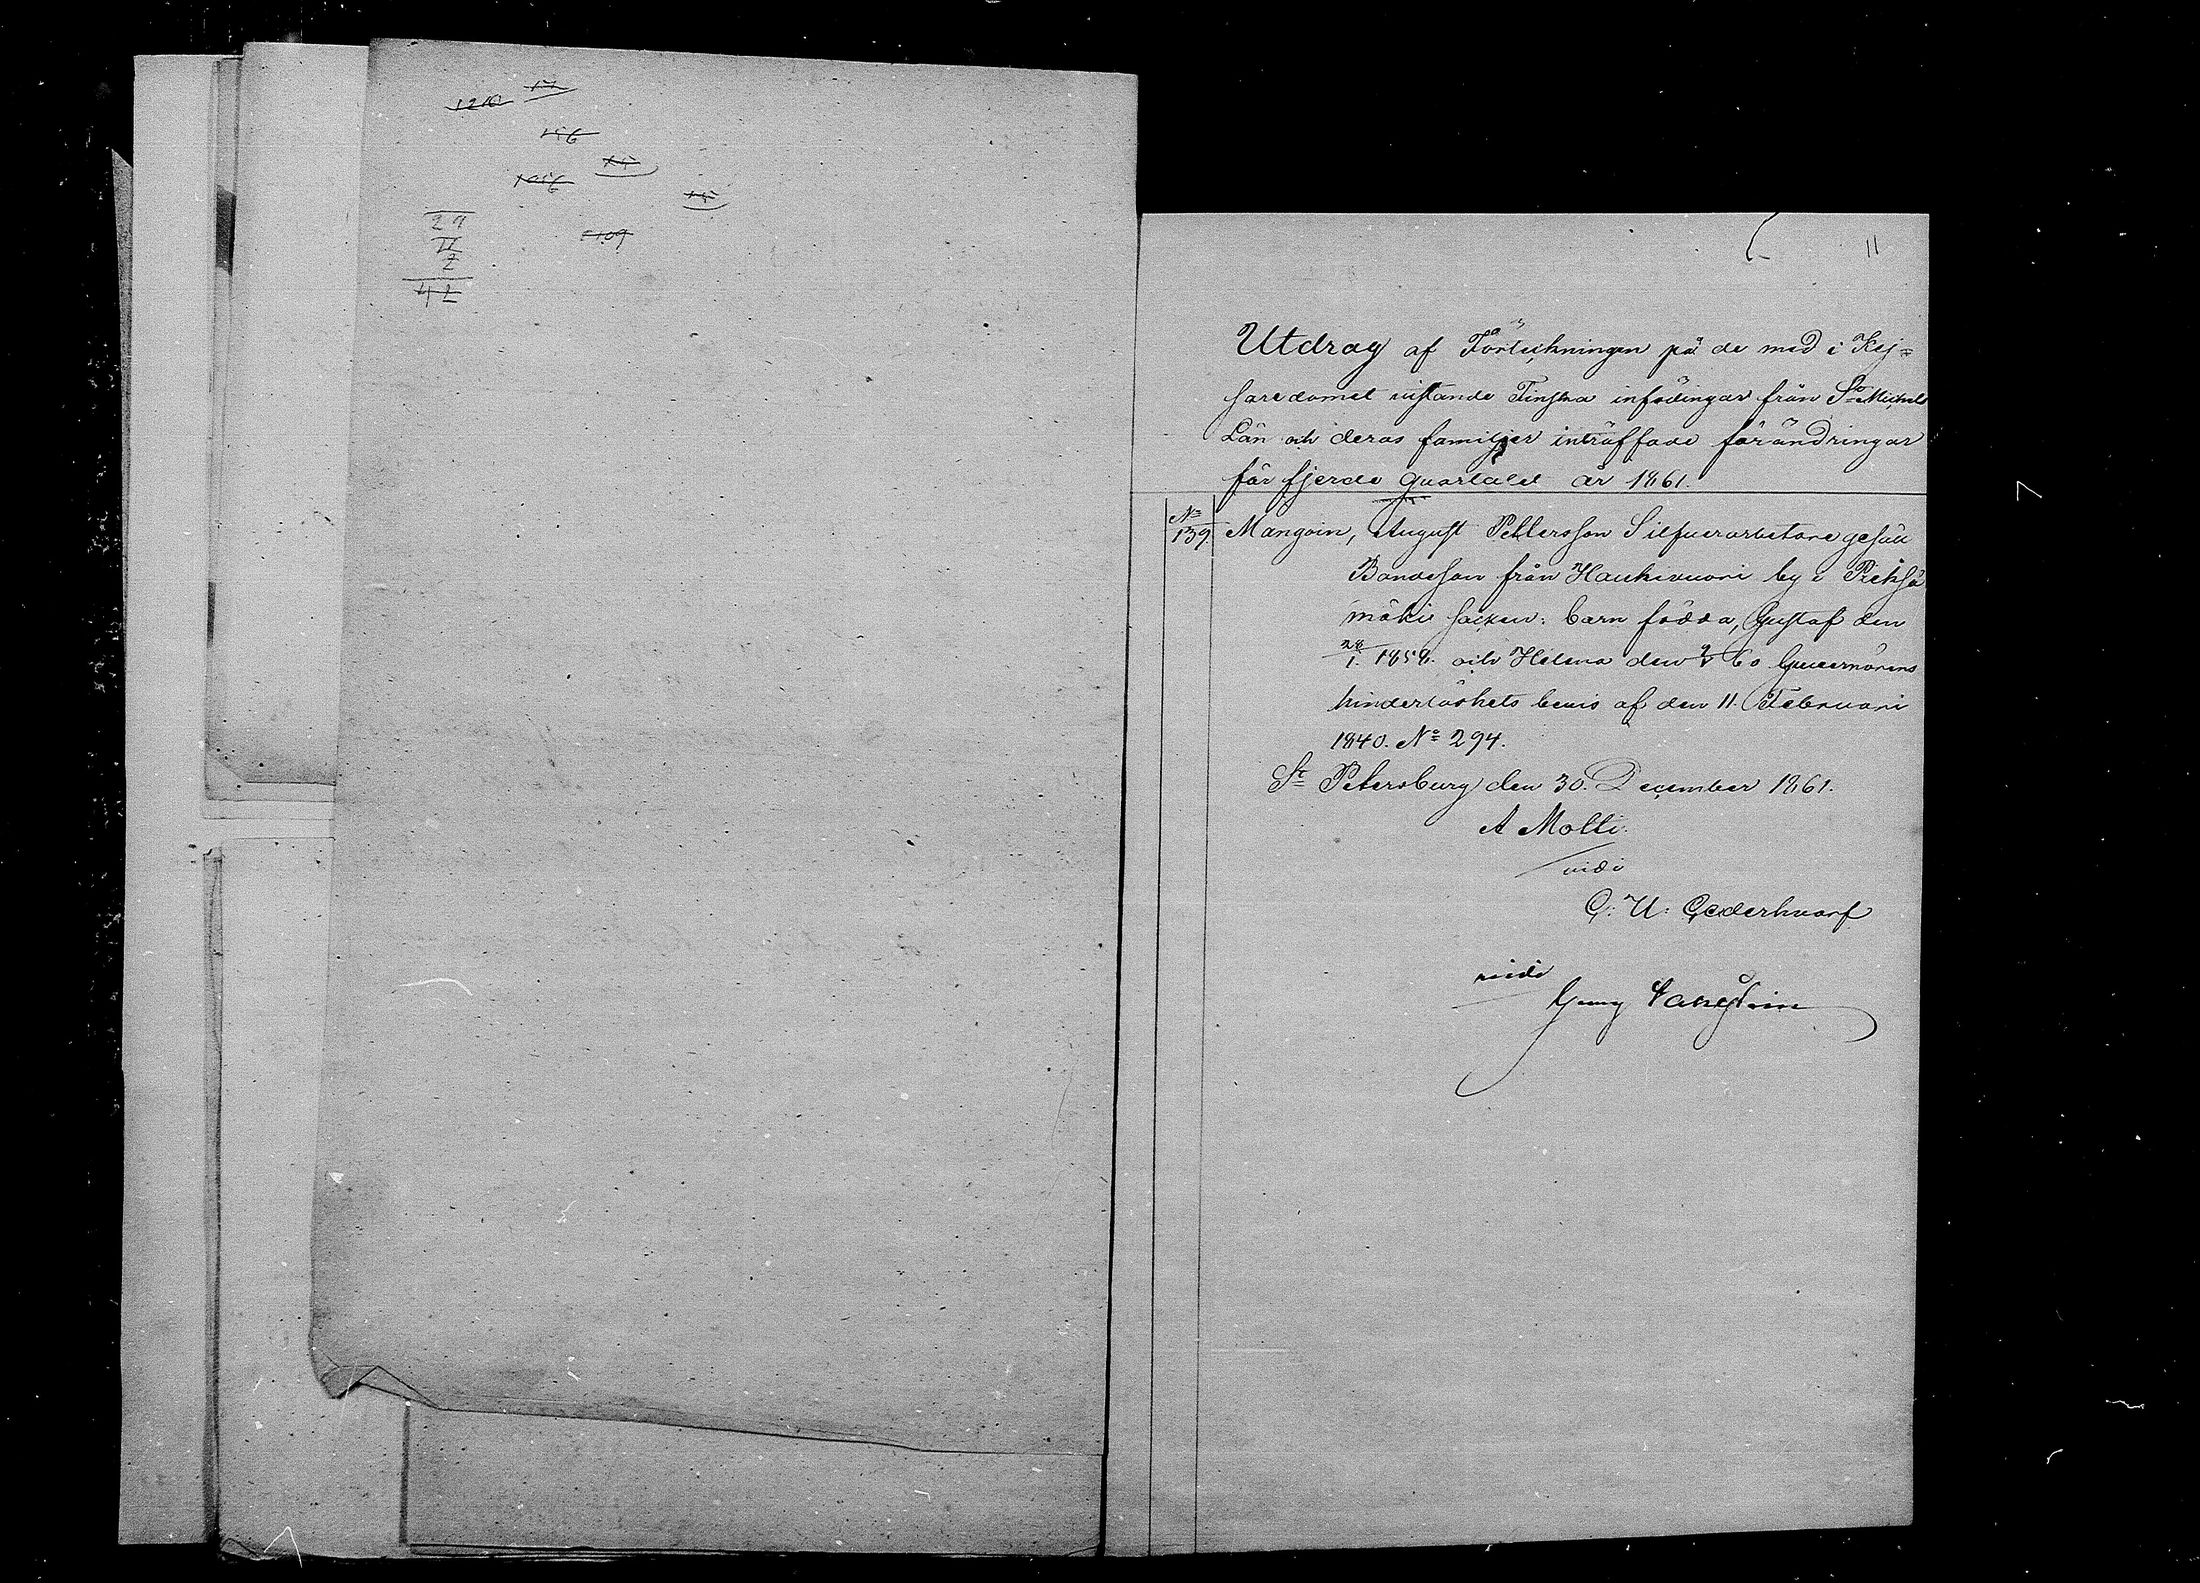 1210 17
156
15
1056
15
29
11
2
42
1109
11
Utdrag af Förteckningen på de med i Kej=
saredomet vistande Finska infödingar från S:t Michels
Län och deras familjer inträffade förändringar
för fjerde Quartalet år 1861.
No
139. Mangoin, August Pettersson Silfverarbetare gesäll
Bondeson från Haukivuori by i Pieksä
mäkie socken: barn födda, Gustaf den
28/1. 1858. och Helena den 9/5 60 Guvernörens
hinderlöshets bevis af den 11. Februari
1840. No 294.
St Petersburg den 30. December 1861.
A Molli.
vidi
C: U: Cederhvarf
vidi